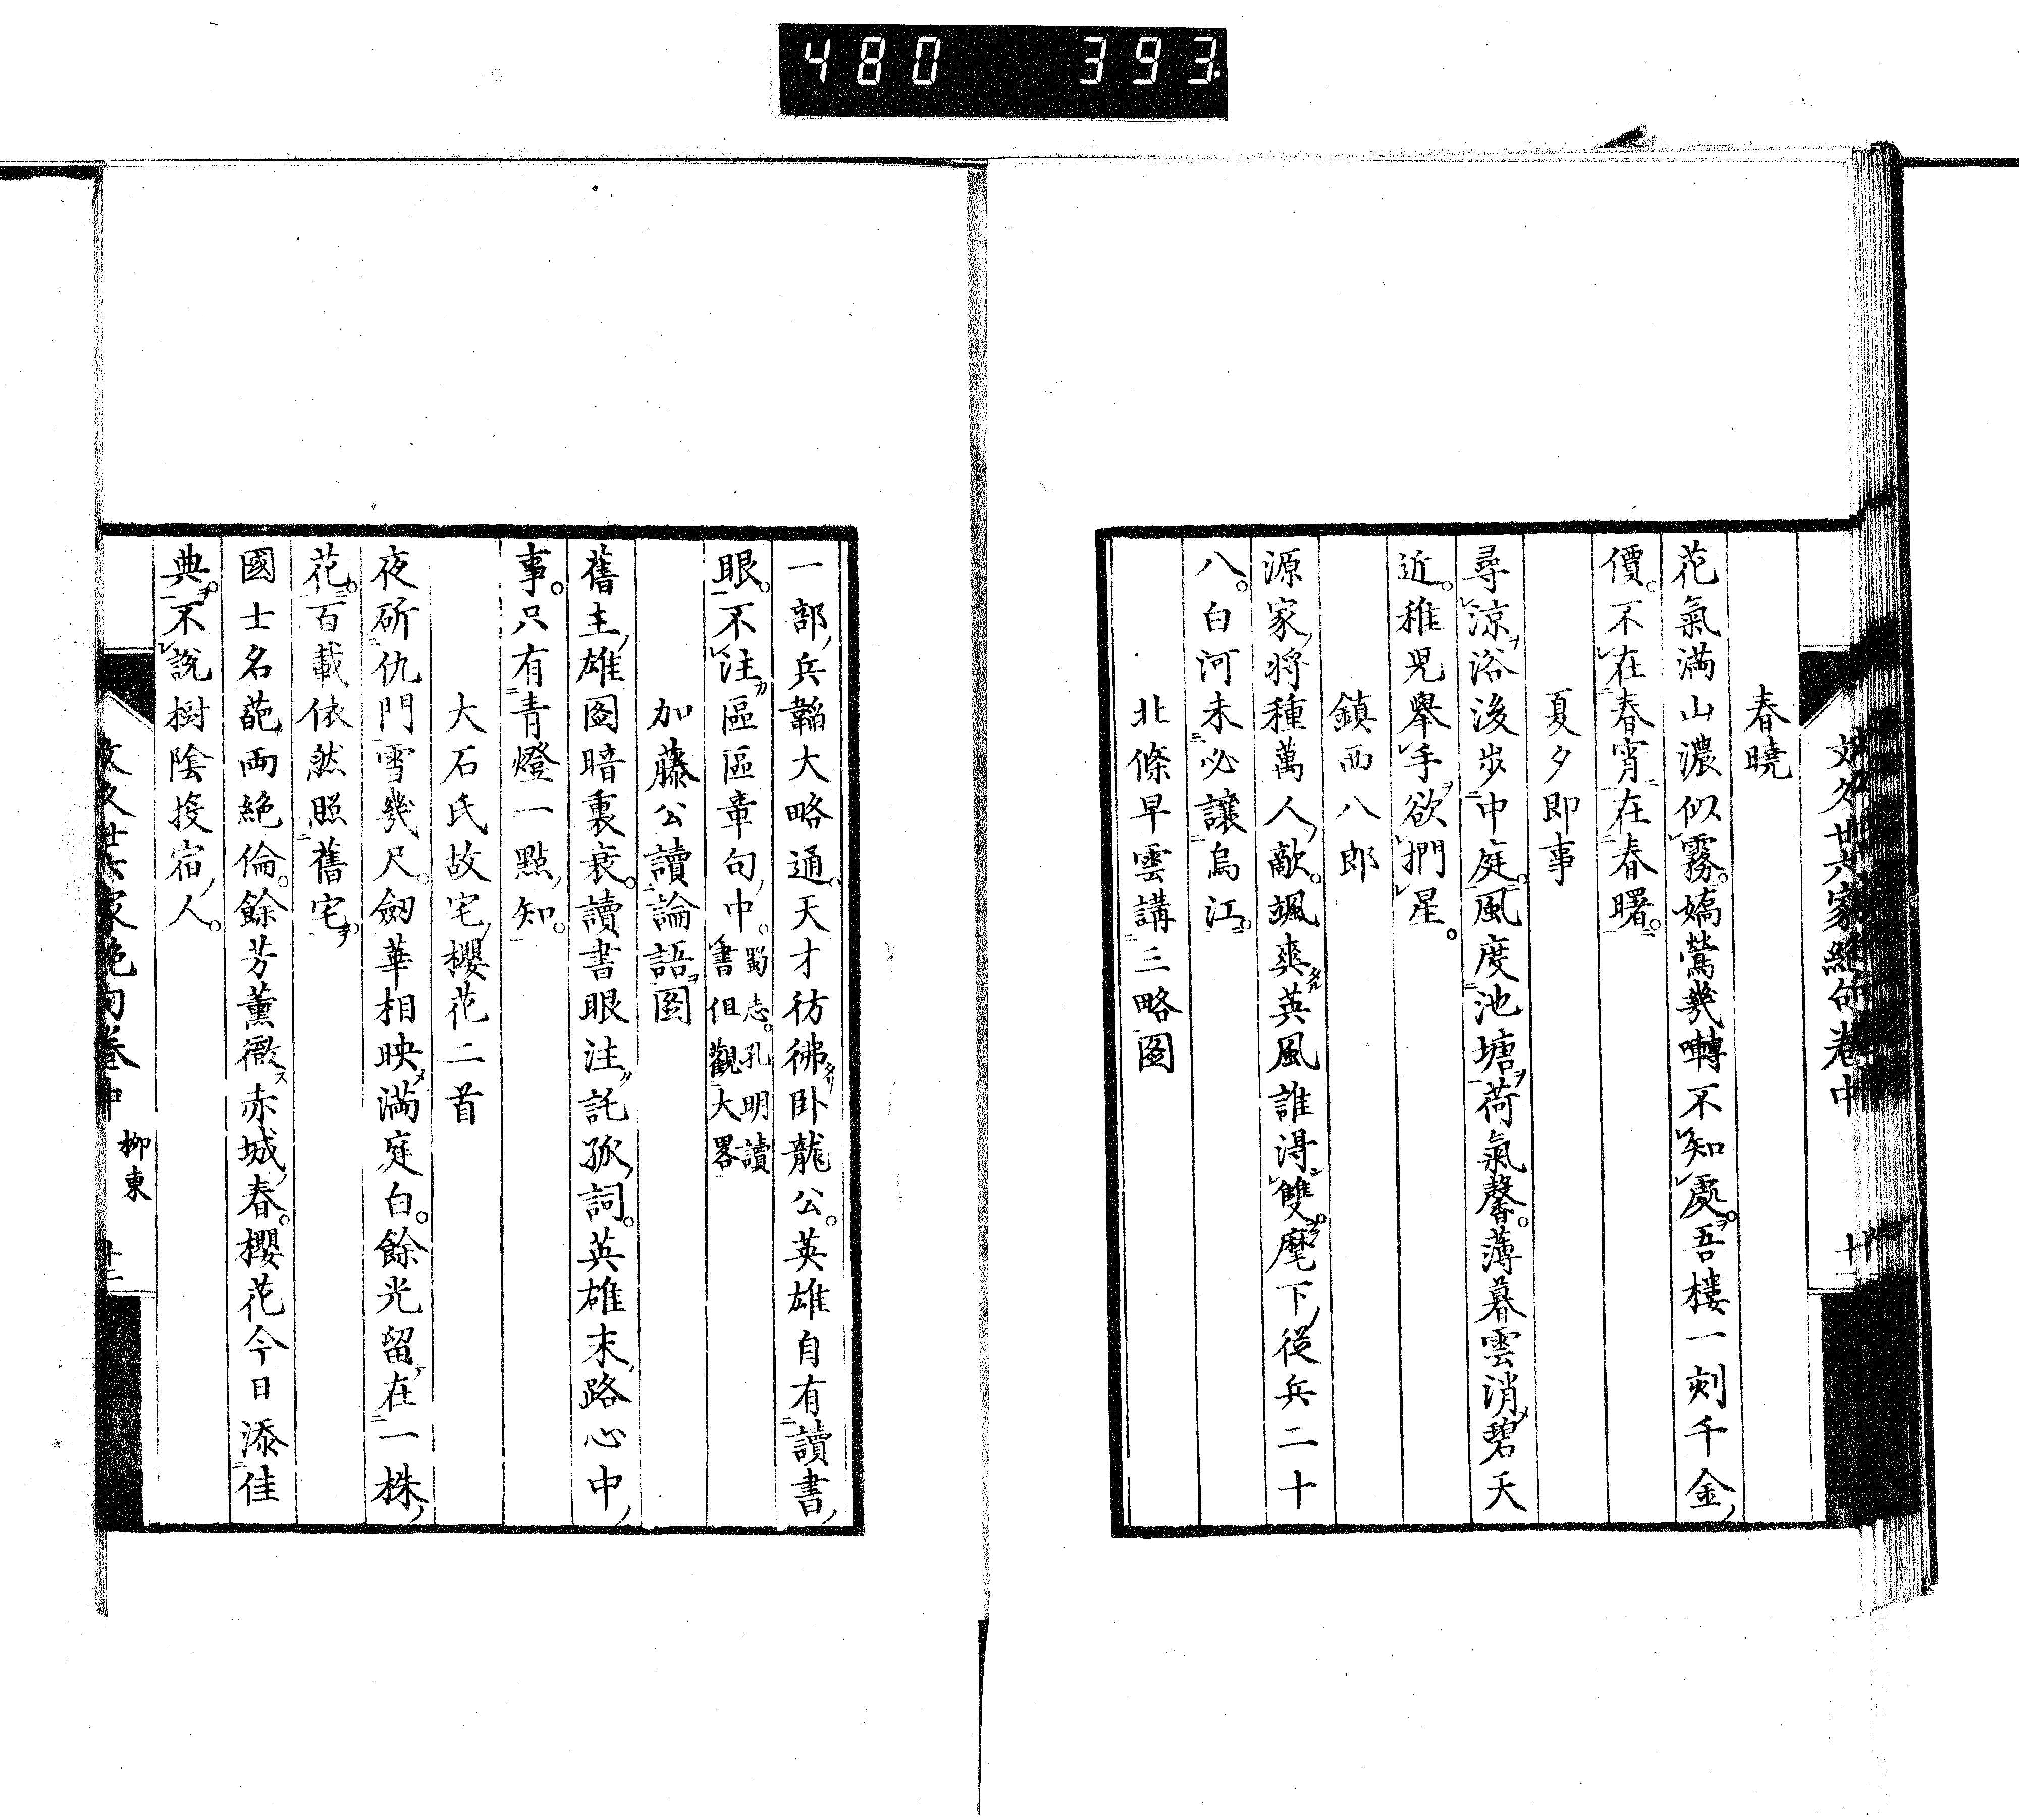 480 393
文久廿六家絕句卷中 廿
春曉
花氣滿山濃似霧。嬌鶯幾囀不知處。吾樓一刻千金
價。不在春宵在春曙。
夏夕即事
尋涼浴後步中庭。風度池塘荷氣馨。薄暮雲消碧天
近。稚兒舉手欲捫星。
鎮西八郎
源家將種萬人敵。颯爽英風誰得雙。麾下從兵二十
八。白河未必讓烏江。
北條早雲講三略圖
一部兵韜大略通。天才彷彿臥龍公。英雄自有讀書
眼。不注區區章句中。蜀志。孔明讀書但觀大畧
加藤公讀論語圖
舊主雄圖暗裏衰。讀書眼注託孤詞。英雄末路心中
事。只有青燈一點知。
大石氏故宅櫻花二首
夜斫仇門雪幾尺。劒華相映滿庭白。餘光留在一株
花。百載依然照舊宅。
國士名葩兩絕倫。餘芳薰徹赤城春。櫻花今日添佳
典。不說樹陰投宿人。
文久廿六家絕句卷中 柳東 廿一